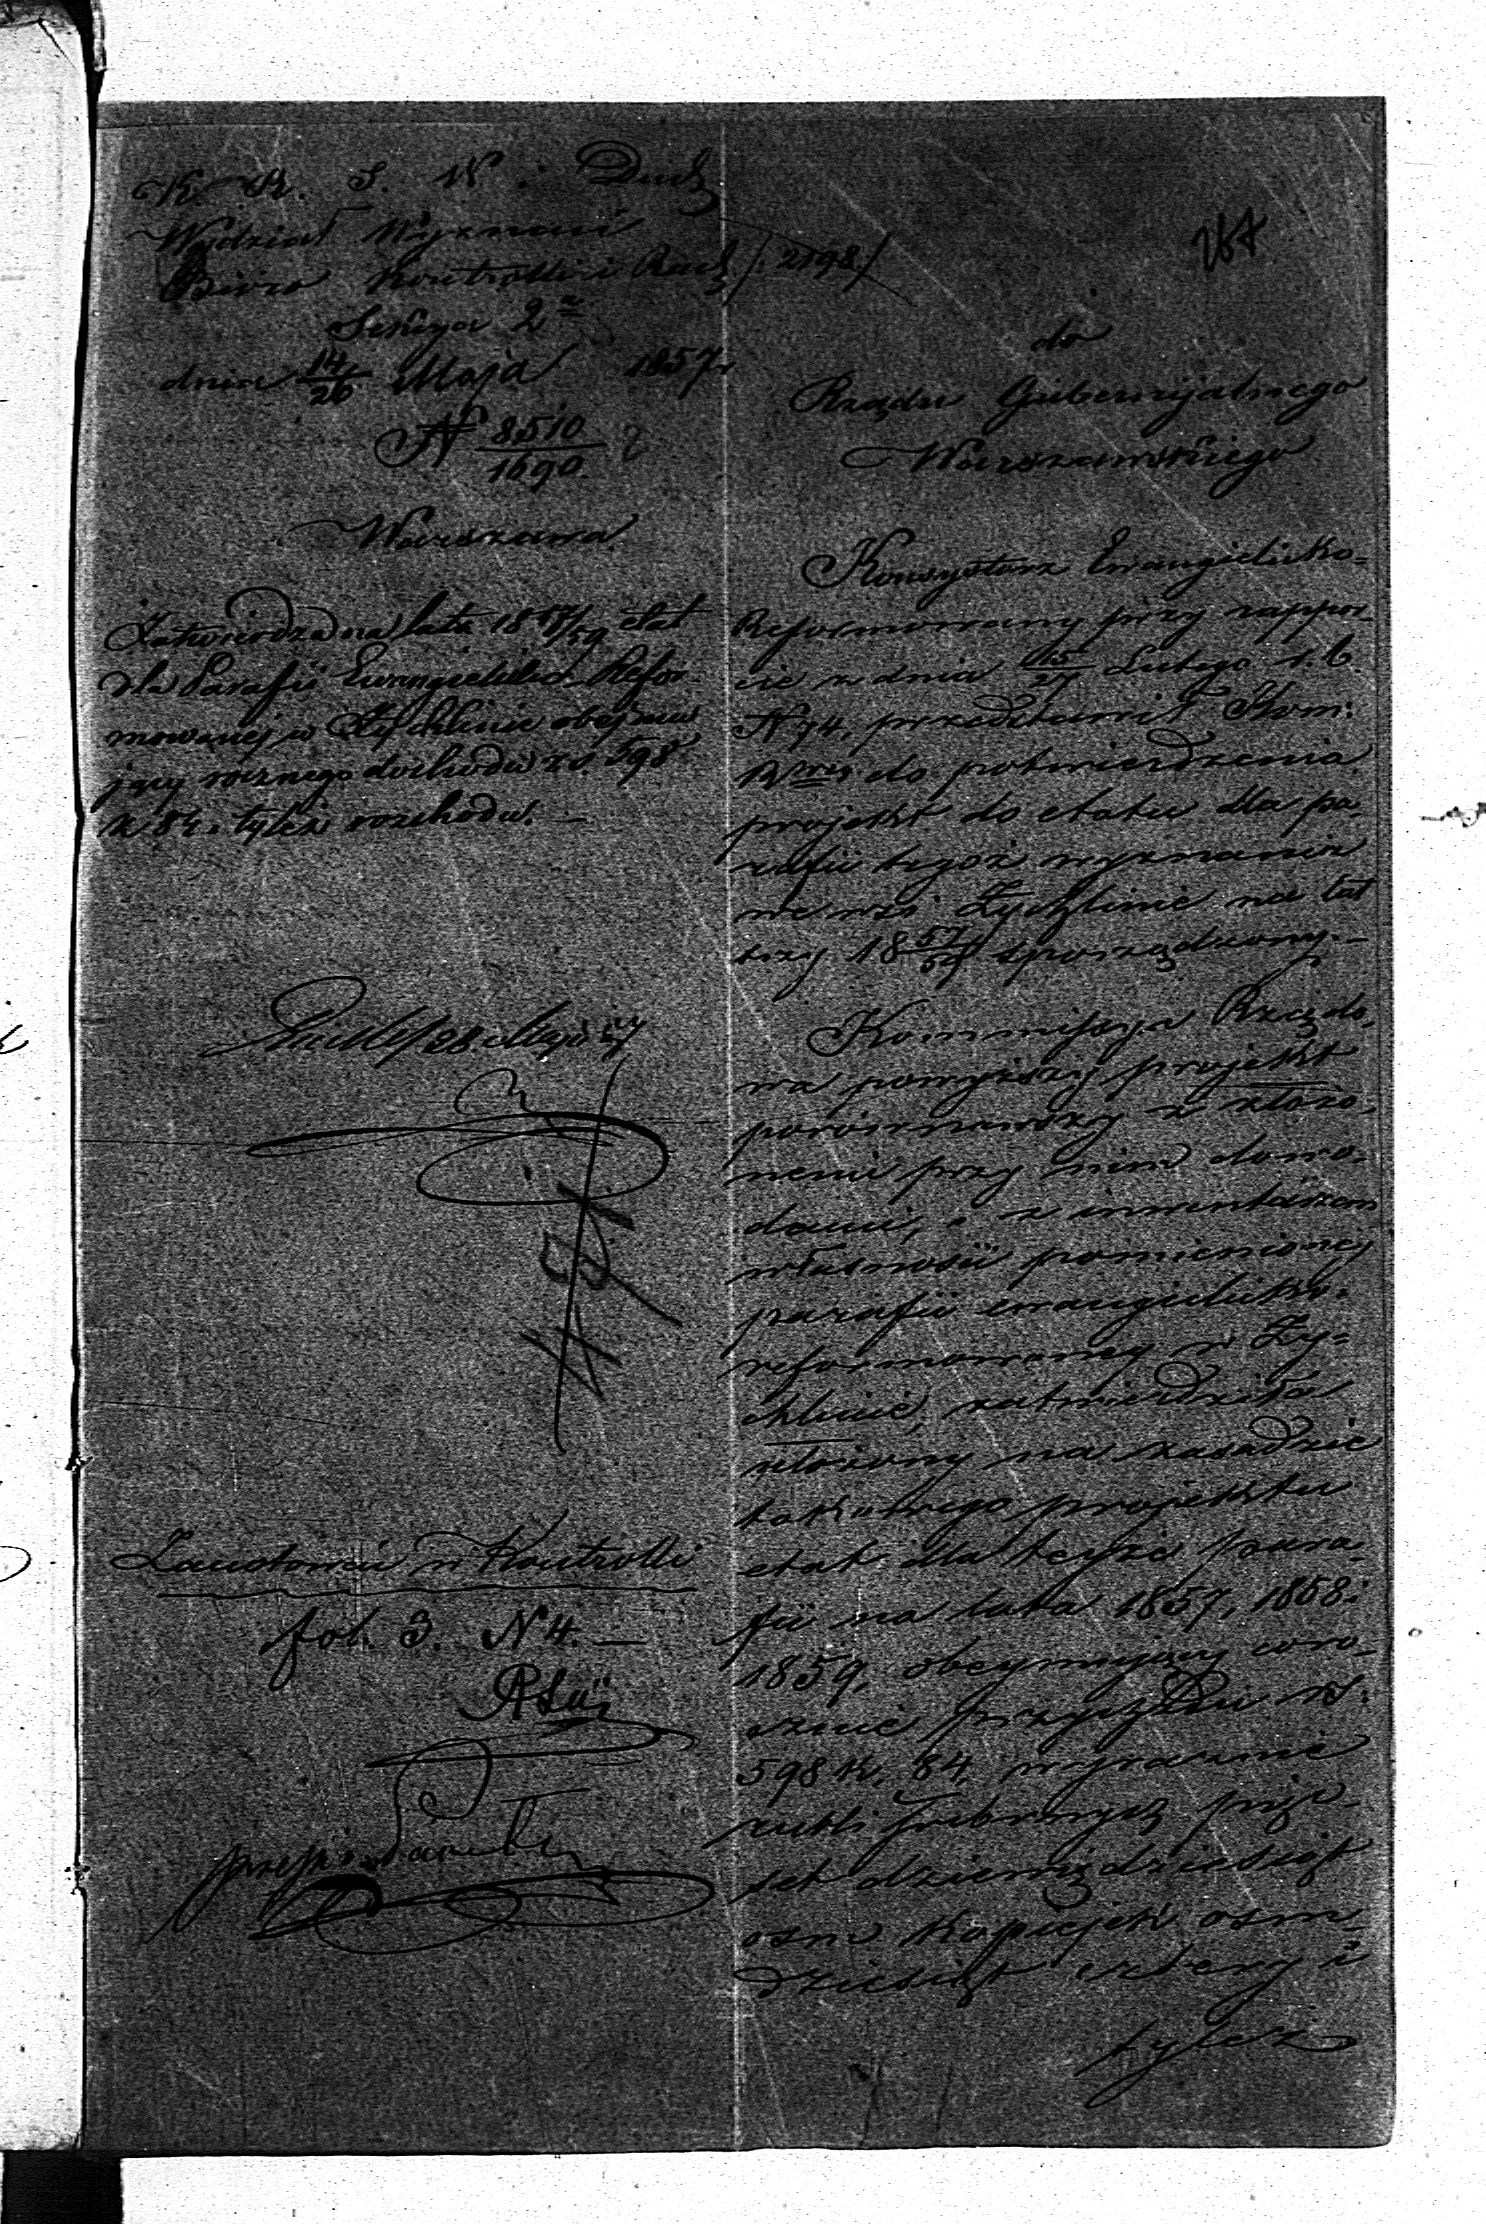 K. R. S. W. i Duch
Wydział Wyznań
Biuro Kontrolli i Rach /: 2198 /
Sekcya 2ª
dnia 14/26 Maja 1857 r.
N 8510/1690.
Warszawa
Zatwierdza na lata 1857/59 etat
dla Parafii Ewangielicko Refor-
mowanej w Żychlinie obejmu
jący rocznego dochodu rs. 598
k 84. i tyleż rozchodu. —
28. Maja 57
Zanotowano w Kontrolli
fol. 3. N 4. —
267
do
Rządu Gubernijalnego
Warszawskiego
Konsystorz Ewangielicko-
Reformowany przy rappor-
cie z dnia 15/27 Lutego r. b.
N 74, przedstawił Kom:
R do potwierdzenia
projekt do etatu dla pa-
rafii tegoż wyznania
we wsi Żychlinie na lat
trzy 1857/59 sporządzony. —
Kommissya Rządo-
wa powyższy projekt
porównawszy z złożo-
nemi przy nim dowo-
dami, i z inwentarzem
własności pomienionej
parafii ewangielicko-
reformowanej w Ży-
chlinie, zatwierdziła
ułożony na zasadzie
takowego projektu
etat dla tejże para-
fii na lata 1857, 1858 i
1859, obejmujący coro-
cznie przychodu rs:
598 k. 84, wyraźnie
rubli srebrnych pięć-
set dziewięćdziesiąt
ośm kopiejek ośm-
dziesiąt cztery i
tyleż